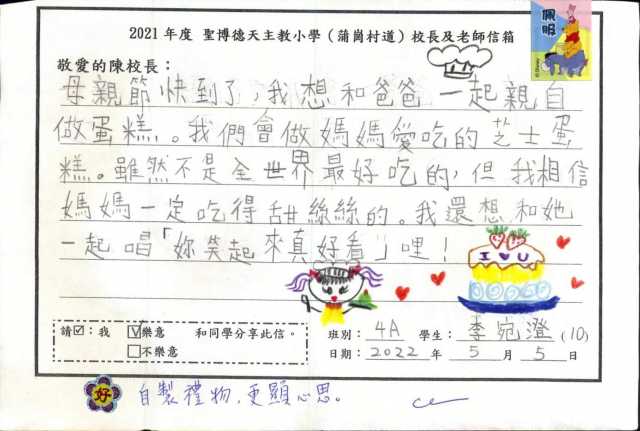 2021 年度 聖博德天主教小學（蒲崗村道）校長及老師信箱
佩服
©Disney
敬愛的陳校長：
母親節快到了，我想和爸爸一起親自
做蛋糕。我們會做媽媽愛吃的芝士蛋
糕。雖然不是全世界最好吃的，但我相信
媽媽一定吃得甜絲絲的。我還想和她
一起唱「妳笑起來真好看」哩！
I ♥ U
請☑：我 ☑樂意 和同學分享此信。
□不樂意
班別： 4A 學生： 李宛澄 (10)
日期： 2022 年 5 月 5 日
好 自製禮物，更顯心思。